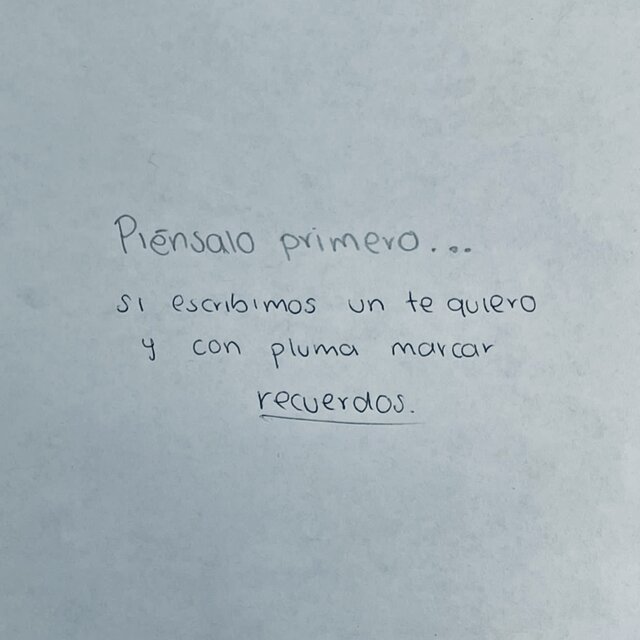 Piénsalo primero...
si escribimos un te quiero
y con pluma marcar
recuerdos.